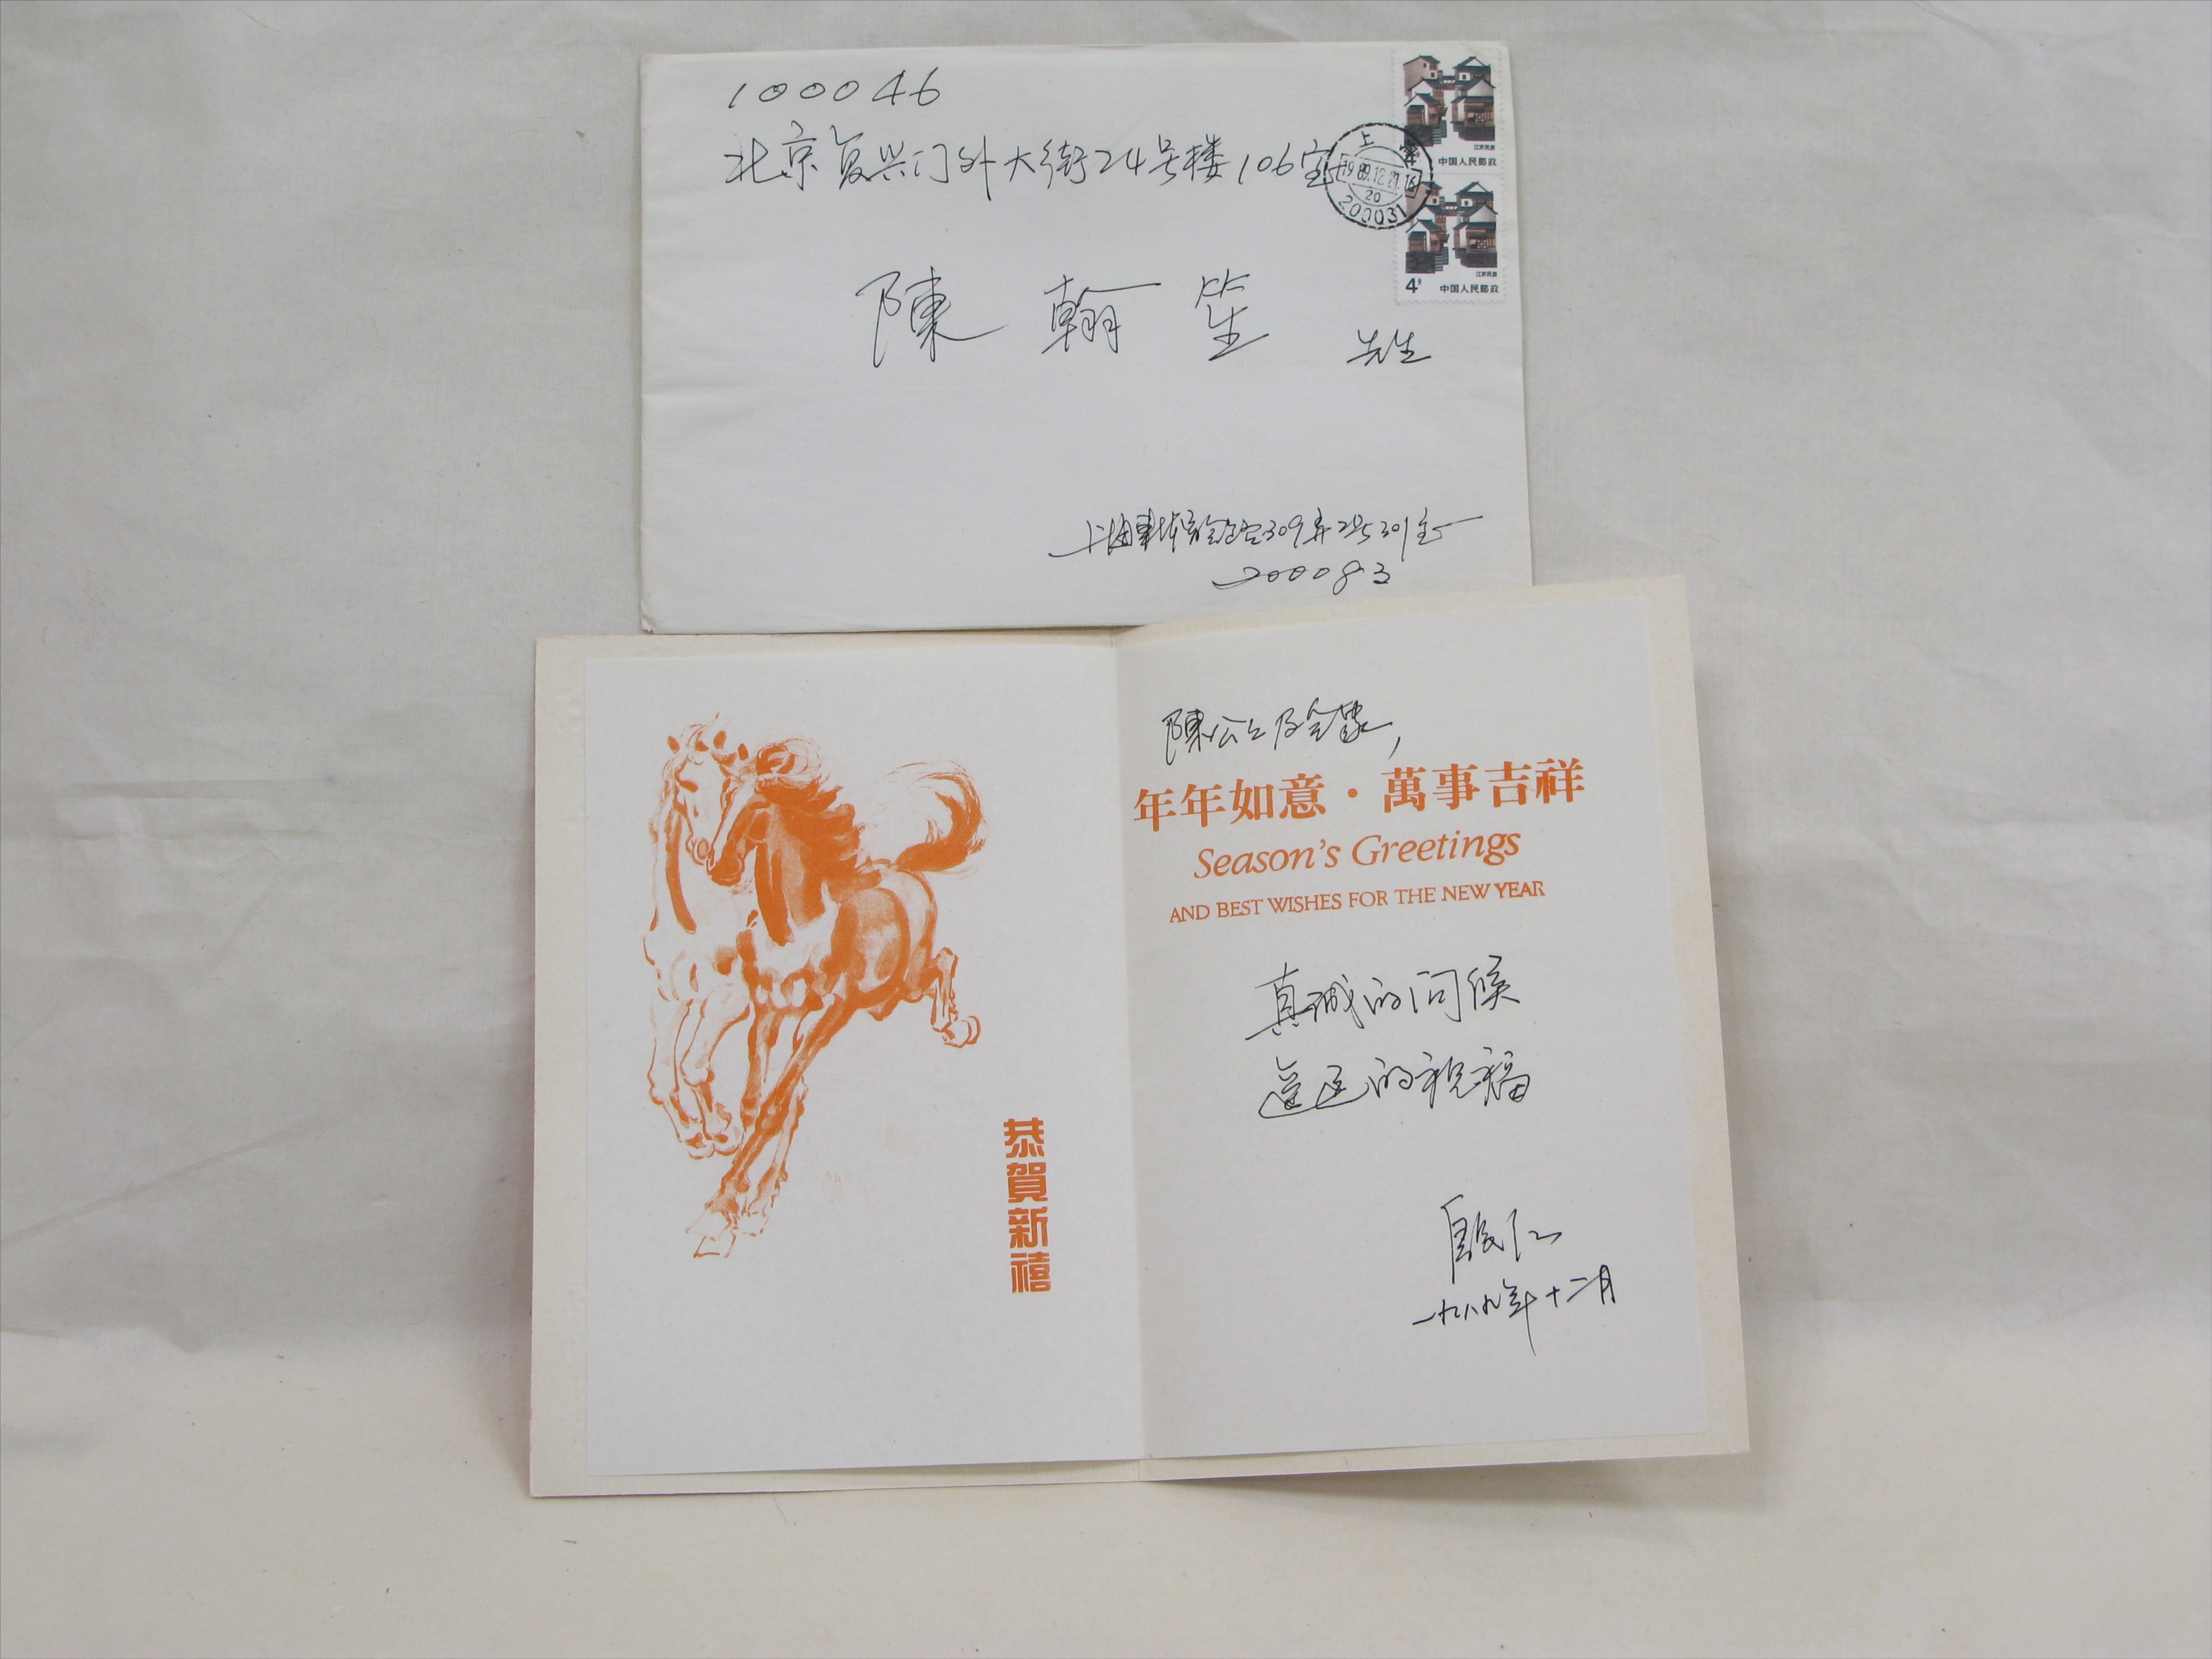 100046
北京复兴门外大街24号楼106室
陳翰笙 先生
上海
1989.12.21.16
20
200031
江苏民居
中国人民邮政
江苏民居
4分 中国人民邮政
309弄2号301室
200083
陳公公及全家,
年年如意·萬事吉祥
Season's Greetings
AND BEST WISHES FOR THE NEW YEAR
真诚的问候
遥远的祝福
一九八九年十二月
恭賀新禧